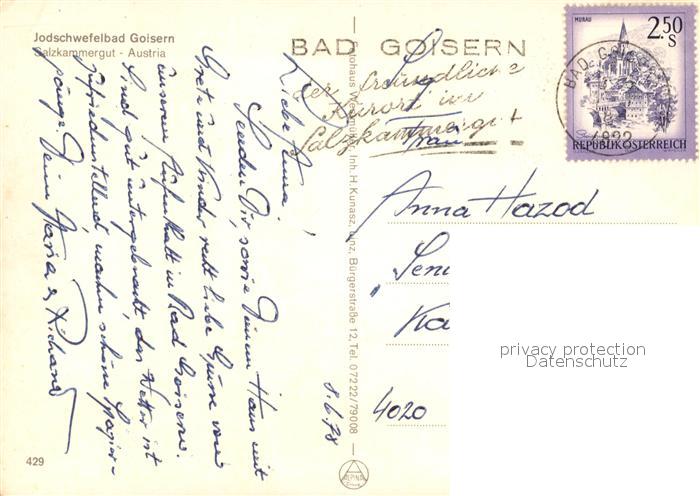 Jodschwefelbad Goisern
Salzkammergut - Austria
BAD GOISERN
der freundliche
Kurort im
Salzkammergut
BAD GOISERN
4822
MURAU
2.50
S
REPUBLIK ÖSTERREICH
Liebe Anna!
Senden Dir, sowie Deinem Haus mit
Grete und Kinder recht liebe Grüsse von
unserem Aufenthalt in Bad Goisern.
Sind gut untergebracht, das Wetter ist
zufriedenstellend, machen schöne Spazier-
gänge. Deine Maria & Richard
8.6.78
Frau
Anna Hazod
4020
Inh. H. Kunasz, Linz, Bürgerstraße 12, Tel. 07222/79008
privacy protection
Datenschutz
429
ALPINA